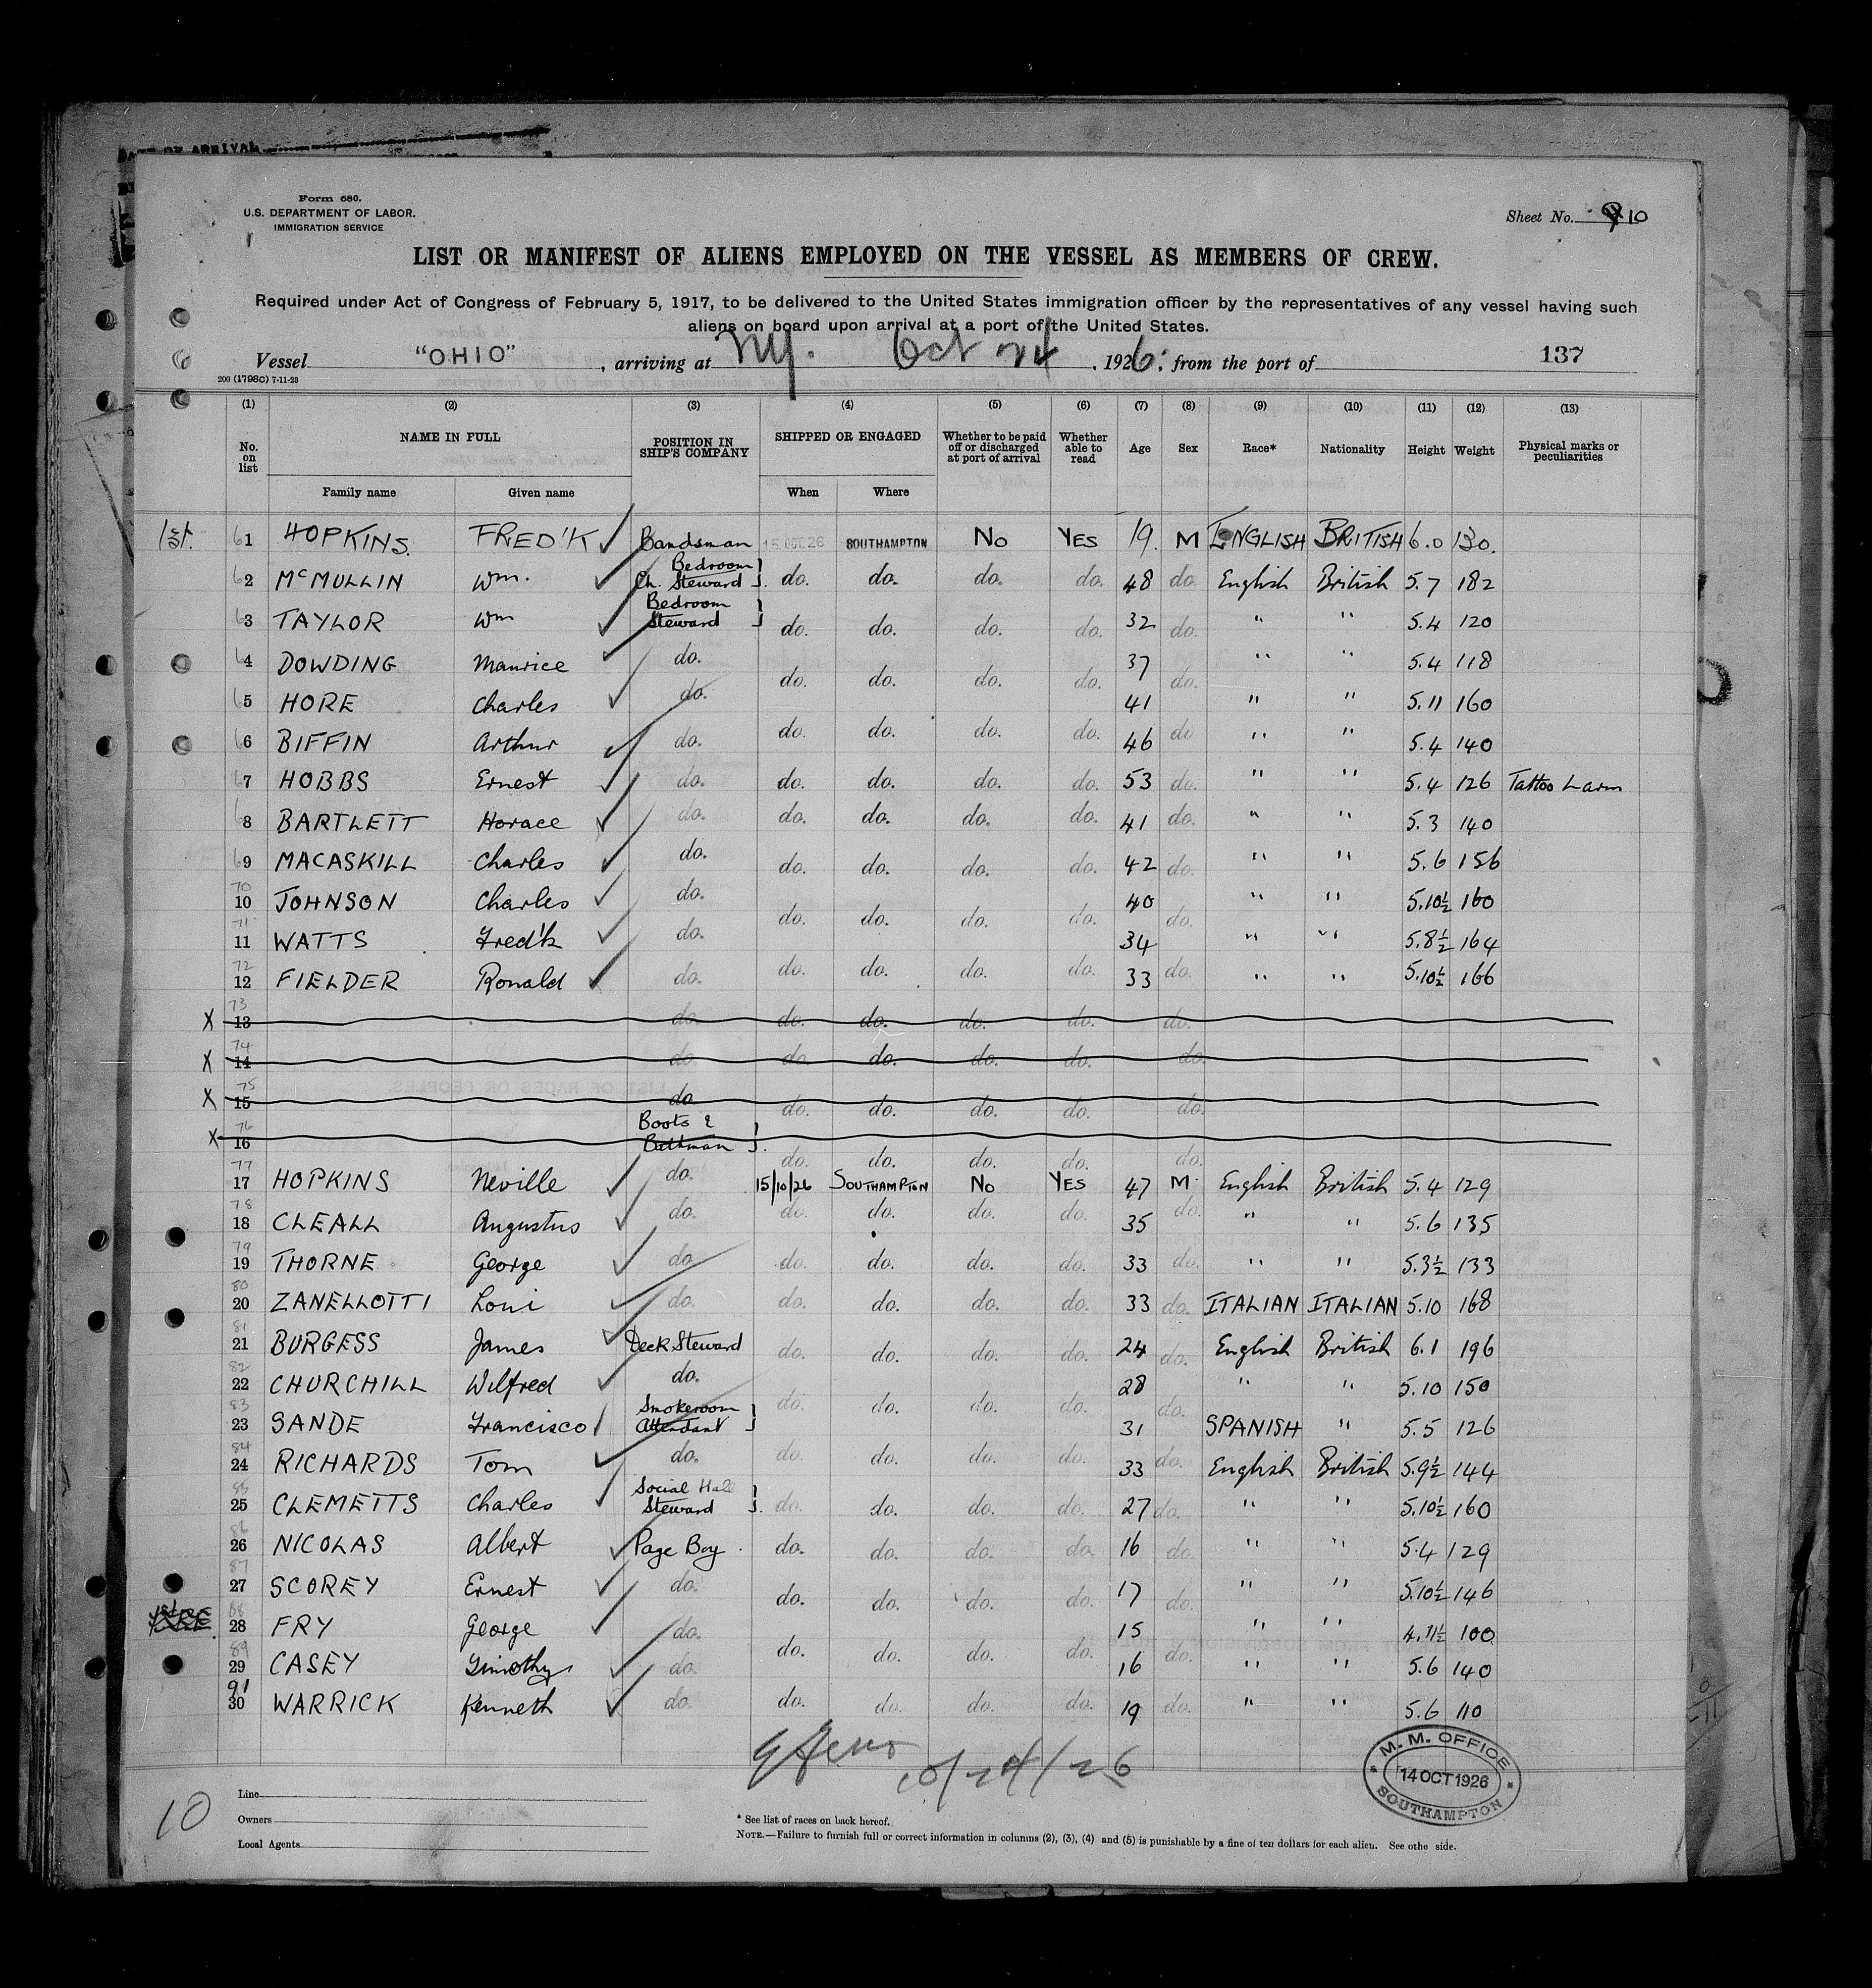 DATE OF ARRIVAL
Form 680.
U.S. DEPARTMENT OF LABOR.
IMMIGRATION SERVICE
Sheet No. 10
LIST OR MANIFEST OF ALIENS EMPLOYED ON THE VESSEL AS MEMBERS OF CREW.
Required under Act of Congress of February 5, 1917, to be delivered to the United States immigration officer by the representatives of any vessel having such
aliens on board upon arrival at a port of the United States.
Vessel "OHIO", arriving at NY. Oct 24, 1926: from the port of 137
200 (1798C) 7-11-23
(1) (2) (3) (4) (5) (6) (7) (8) (9) (10) (11) (12) (13)
No. on list NAME IN FULL POSITION IN SHIP'S COMPANY SHIPPED OR ENGAGED Whether to be paid off or discharged at port of arrival Whether able to read Age Sex Race* Nationality Height Weight Physical marks or peculiarities
Family name Given name When Where
1st. 61 HOPKINS. FRED'K Bandsman 15 OCT. 26 SOUTHAMPTON No YES 19. M ENGLISH BRITISH 6.0 130.
62 McMULLIN Wm. Bedroom Ch. Steward do. do. do. do. 48 do English British 5.7 182
63 TAYLOR Wm Bedroom Steward do. do. do. do. 32 do. " " 5.4 120
64 DOWDING Maurice do. do. do. do. do. 37 do. " " 5.4 118
65 HORE Charles do. do. do. do. do. 41 " " 5.11 160
66 BIFFIN Arthur do. do. do. do. do. 46 do " " 5.4 140
67 HOBBS Ernest do. do. do. do. do. 53 do. " " 5.4 126 Tattoo L arm
68 BARTLETT Horace do. do. do. do. do. 41 do. " " 5.3 140
69 MACASKILL Charles do. do. do. do. do. 42 do. " " 5.6 156
70 10 JOHNSON Charles do. do. do. do. do. 40 do. " " 5.10½ 160
71 11 WATTS Fred'k do. 34 " " 5.8½ 164
72 12 FIELDER Ronald do. do. do. do. do. 33 do. " " 5.10½ 166
X 73 13 do. do. do. do. do. do.
X 74 14 do do do. do. do. do.
X 75 15 do do. do. do. do. do.
X 76 16 Boots & Bathman do. do. do. do. do.
77 17 HOPKINS Neville do. 15/10/26 SOUTHAMPTON No YES 47 M. English British 5.4 129
78 18 CLEALL Augustus do. do. do. do. do. 35 do. " " 5.6 135
79 19 THORNE George do do. do. do. do. 33 do. " " 5.3½ 133
80 20 ZANELLOTTI Loui do. do. do. do. do. 33 do. ITALIAN ITALIAN 5.10 168
81 21 BURGESS James Deck Steward do. do. do. do. 24 do. English British 6.1 196
82 22 CHURCHILL Wilfred do. do. do. do. do. 28 do. " " 5.10 150
83 23 SANDE Francisco Smokeroom Attendant 31 SPANISH " 5.5 126
84 24 RICHARDS Tom do. do. do. do. do. 33 do. English British 5.9½ 144
85 25 CLEMETTS Charles Social Hall Steward do. do. do. do. 27 do. " " 5.10½ 160
86 26 NICOLAS Albert Page Boy do. do. do. do. 16 do. " " 5.4 129
87 27 SCOREY Ernest do. do. do. do. do. 17 do. " " 5.10½ 146
88 28 FRY George do. 15 " " 4.11½ 100
89 29 CASEY Timothy do. do. do. do. do. 16 do. " " 5.6 140
91 30 WARRICK Kenneth do. do. do. do. do. 19 do. " " 5.6 110
10/24/26
M. M. OFFICE
14 OCT 1926
SOUTHAMPTON
10
Line
Owners
Local Agents
* See list of races on back hereof.
NOTE.—Failure to furnish full or correct information in columns (2), (3), (4) and (5) is punishable by a fine of ten dollars for each alien. See othe side.